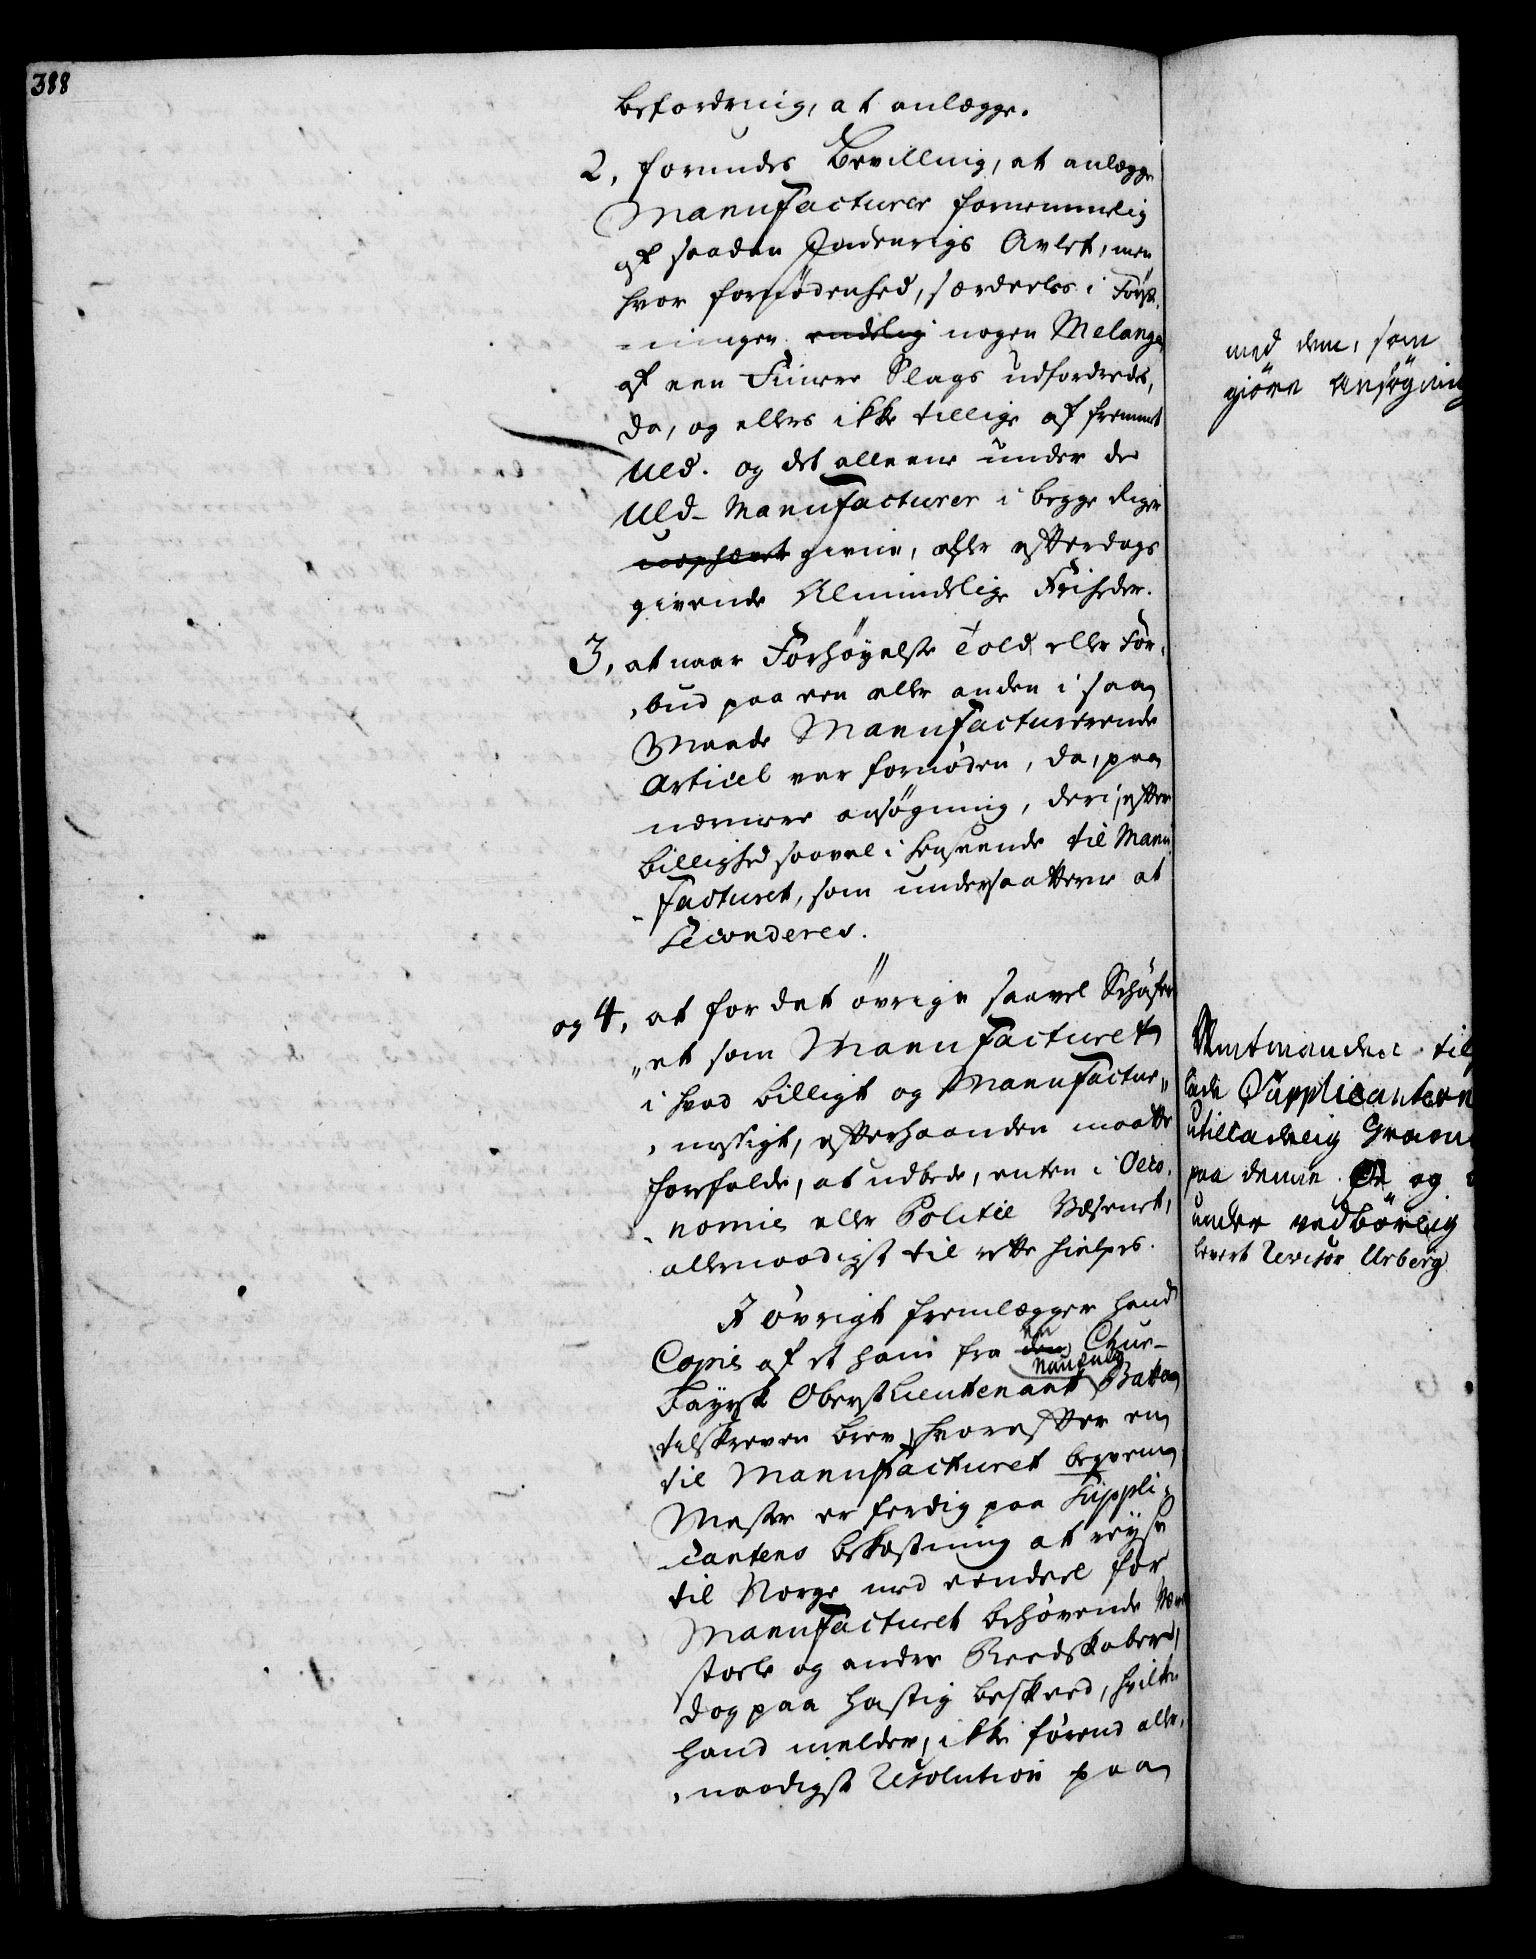 388
befordring, at anlægge.
2, forundes Bevilling, at anlægge
Manufacturer fornemmelig
af saadan Indenrigs Avlet, men
hvor fornødenhed, særdeeles i Først-
-ningen endelig nogen Melange
af een Finere Slags udfordredes,
da, og ellers ikke tillige af fremmet
Uld. og det alleene under de
Uld-Manufacturer i begge Riger
givne, eller efterdags
givende Almindelige Friheder.
3, at naar Forhøyelse Told eller For-
-bud paa een eller anden i saa
Maade Manufacturerende
Articel var fornøden, da, paa
nærmere ansøgning, deri, efter
billighed saavel i henseende til Manu-
-facturet, som undersaatterne at
Seconderes.
og 4, at for det øvrige saavel Schæfer-
-et som Manufacturet
i hvad billigt og Manufactur-
-messigt, efterhaanden maatte
forefalde, at udbede, enten i Oeco-
-nomie eller Politie Væsenet,
allernaadigst til rette hielpes.
I øvrigt fremlægger hand
Copie af et ham fra den Chur-
en
Bayrsk Oberst Lieutenant
tilskreven brev, hvorefter en
til Manufacturet beqvem
Mester er ferdig paa Suppli-
-cantens bekostning at reyse
til Norge med eendeel for
Manufacturet behøvende Væve
stoele og andre Reedskaber,
dog paa hastig beskeed, hvilke
hand melder, ikke førend aller-
-naadigst Resolution paa
med dem, som
giöre Ansøgning
Amtmanden til
lade Supplicantern
utilladelig
paa denne og
under vedbörlig
levert Revisor Urberg